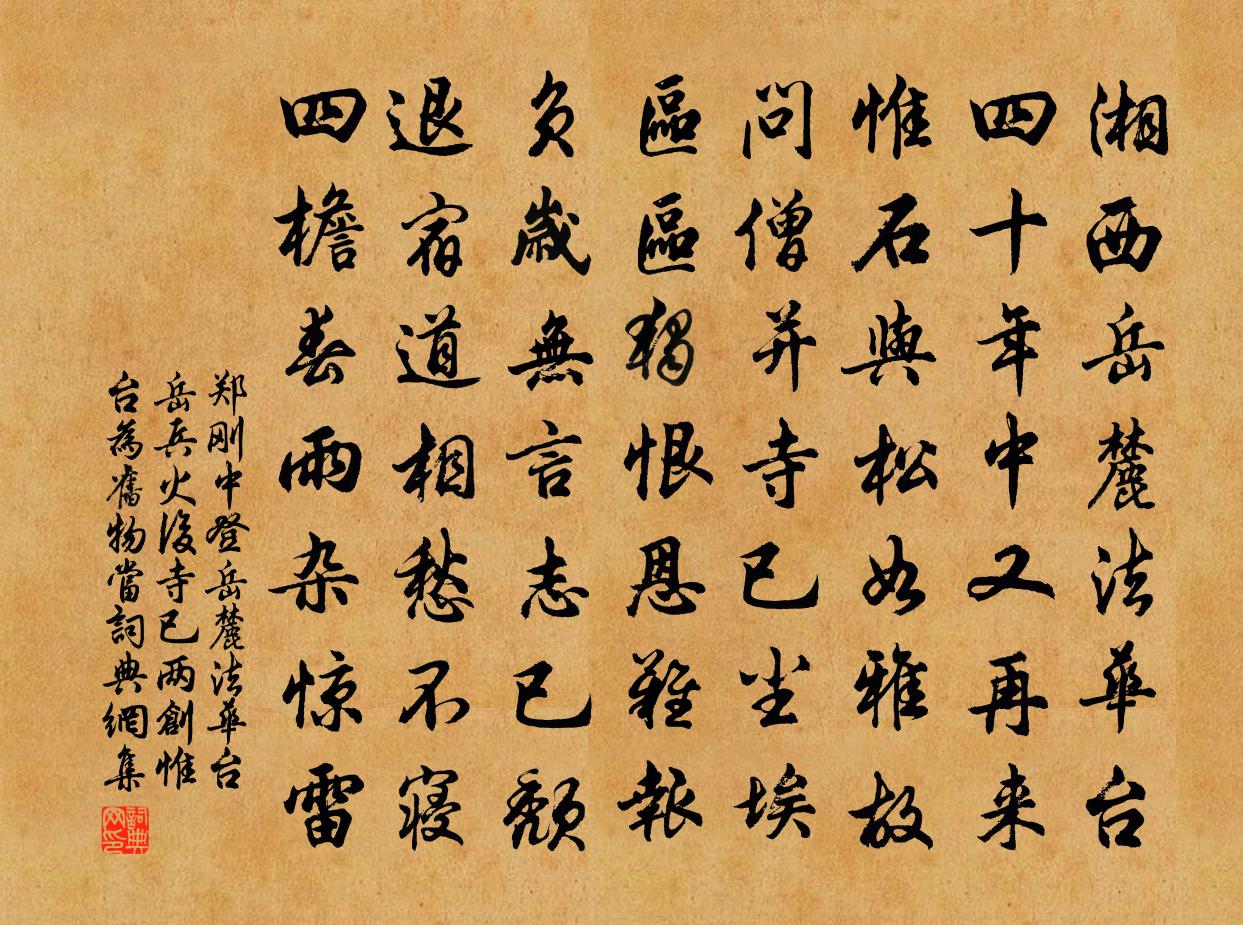 湘西岳麓法華台
四十年中又再来
惟石與松如雅故
問僧并寺已尘埃
區區獨恨恩難報
負歲無言志已頹
退宿道相愁不寝
四檐春雨杂惊雷
郑刚中登岳麓法華台
岳兵火後寺已两創惟
台為舊物當詞典網集
詞典
网印